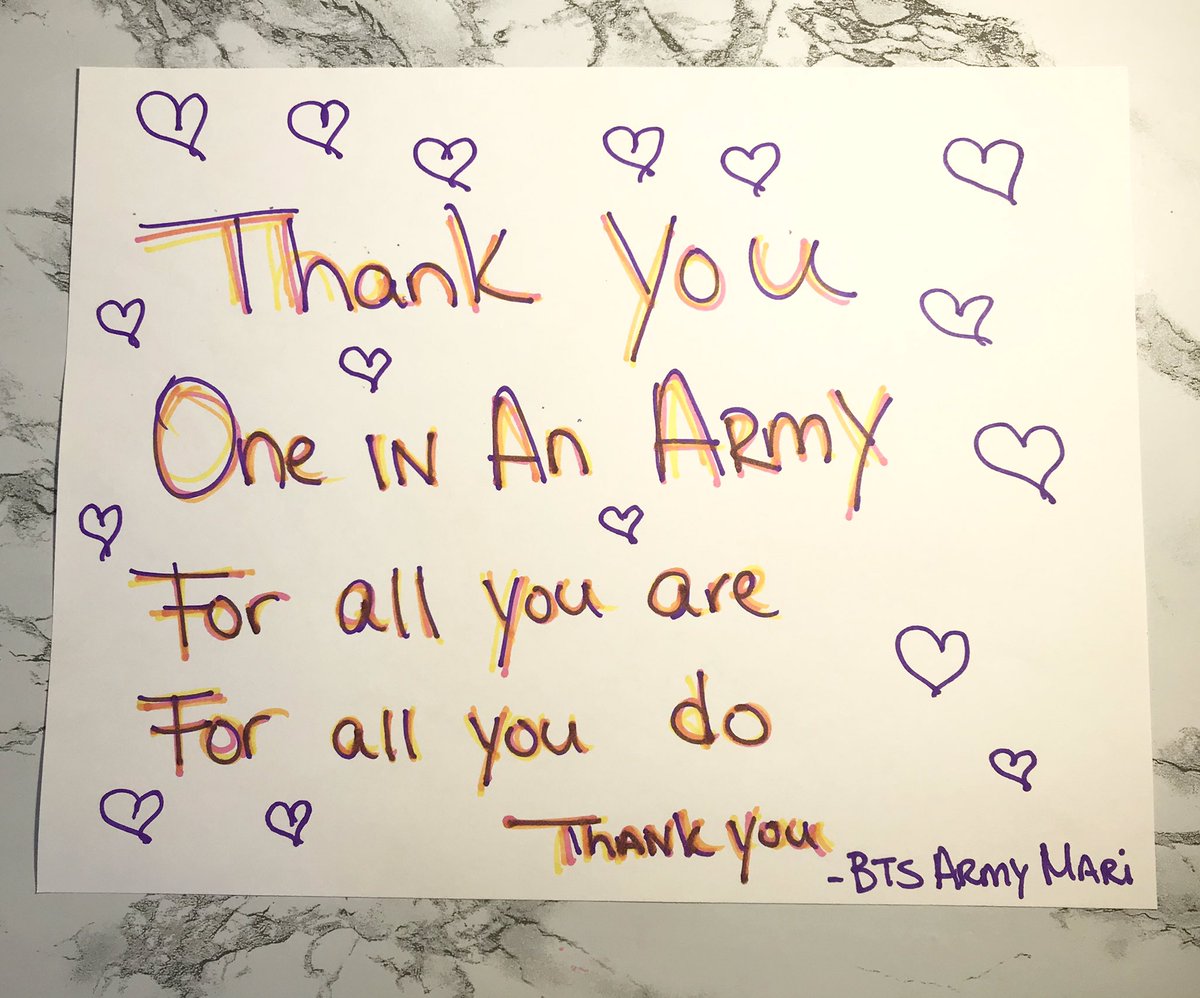 Thank you
One IN An ARmy
For all you are
For all you do
THANK you
-BTS ARMY MARi